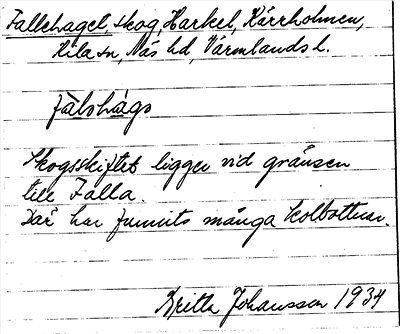 Fallehagel, skog, Harkel, Kärrholmen,
Kila sn, Näs hd, Värmlands l.
fàlshàgs
Skogsskiftet ligger vid gränsen
till Falla.
Där har funnits många kolbottnar.
Britta Johansson 1934